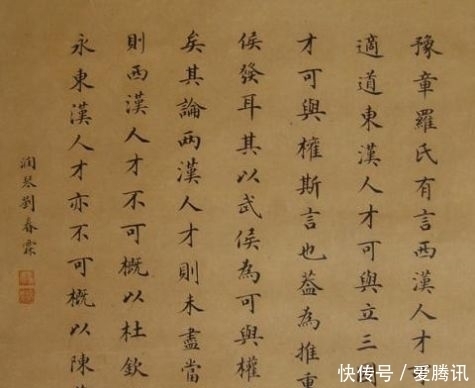 豫章羅氏有言西漢人才
適道東漢人才可與立三國
才可與權斯言也葢為推重
侯發耳其以武侯為可與權
矣其論两漢人才則未盡當
則西漢人才不可概以杜欽
永東漢人才亦不可概以陳
潤琴劉春霖
快传号/爱腾讯